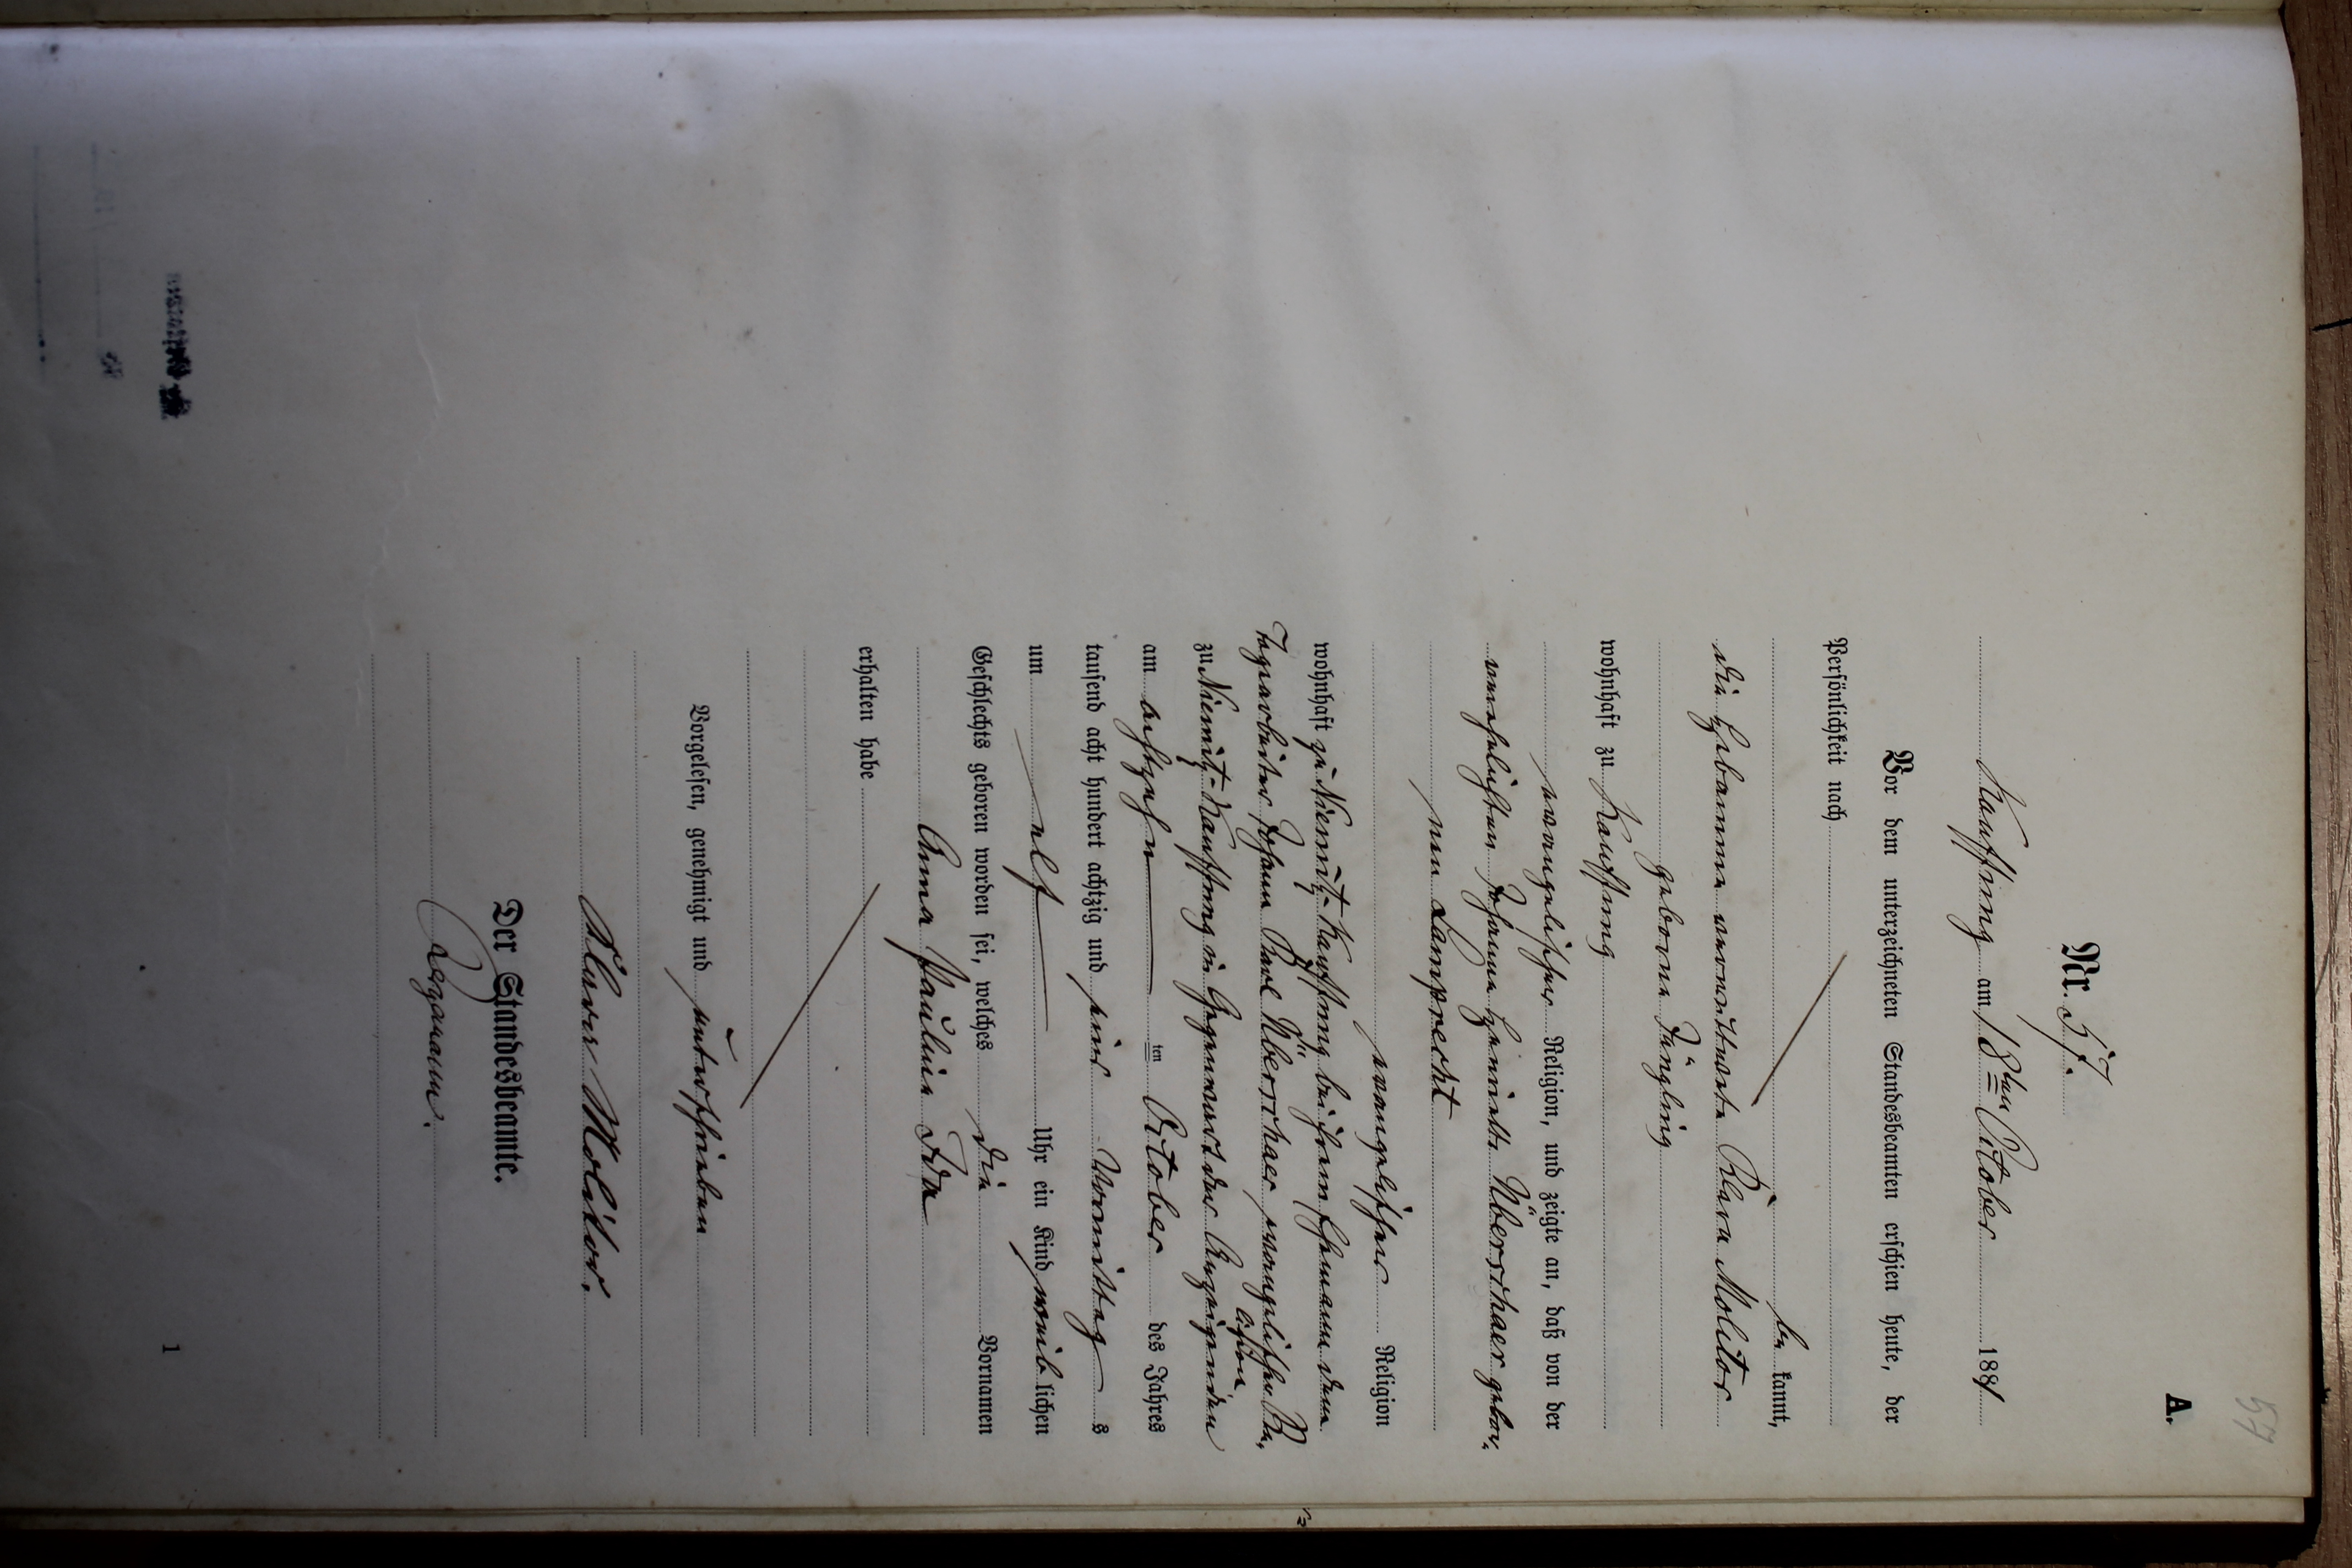 57
A.
Nr. 57.
Kauffung am 18ten October 1881
Vor dem unterzeichneten Standesbeamten erschien heute, der
Persönlichkeit nach
be kannt,
die Hebamme verwittwete Klara Molitor
geborne Jüngling
wohnhaft zu Kauffung
evangelischer Religion, und zeigte an, daß von der
verehelichten Johanne Henriette Überschaer gebor-
nen Lamprecht
evangelischer Religion
wohnhaft zu Niemitz-Kauffung bei ihrem Ehemann dem
Tagearbeiter Johann Karl Überschaer evangelischer Re-
ligion
zu Niemitz-Kauffung in Gegenwart der Anzeigenden
am achtzehn ten October des Jahres
tausend acht hundert achtzig und eins Vormittag s
um elf Uhr ein Kind weib lichen
Geschlechts geboren worden sei, welches die Vornamen
Anna Pauline Ida
erhalten habe
Vorgelesen, genehmigt und unterschrieben
Klara Molitor.
Der Standesbeamte.
1